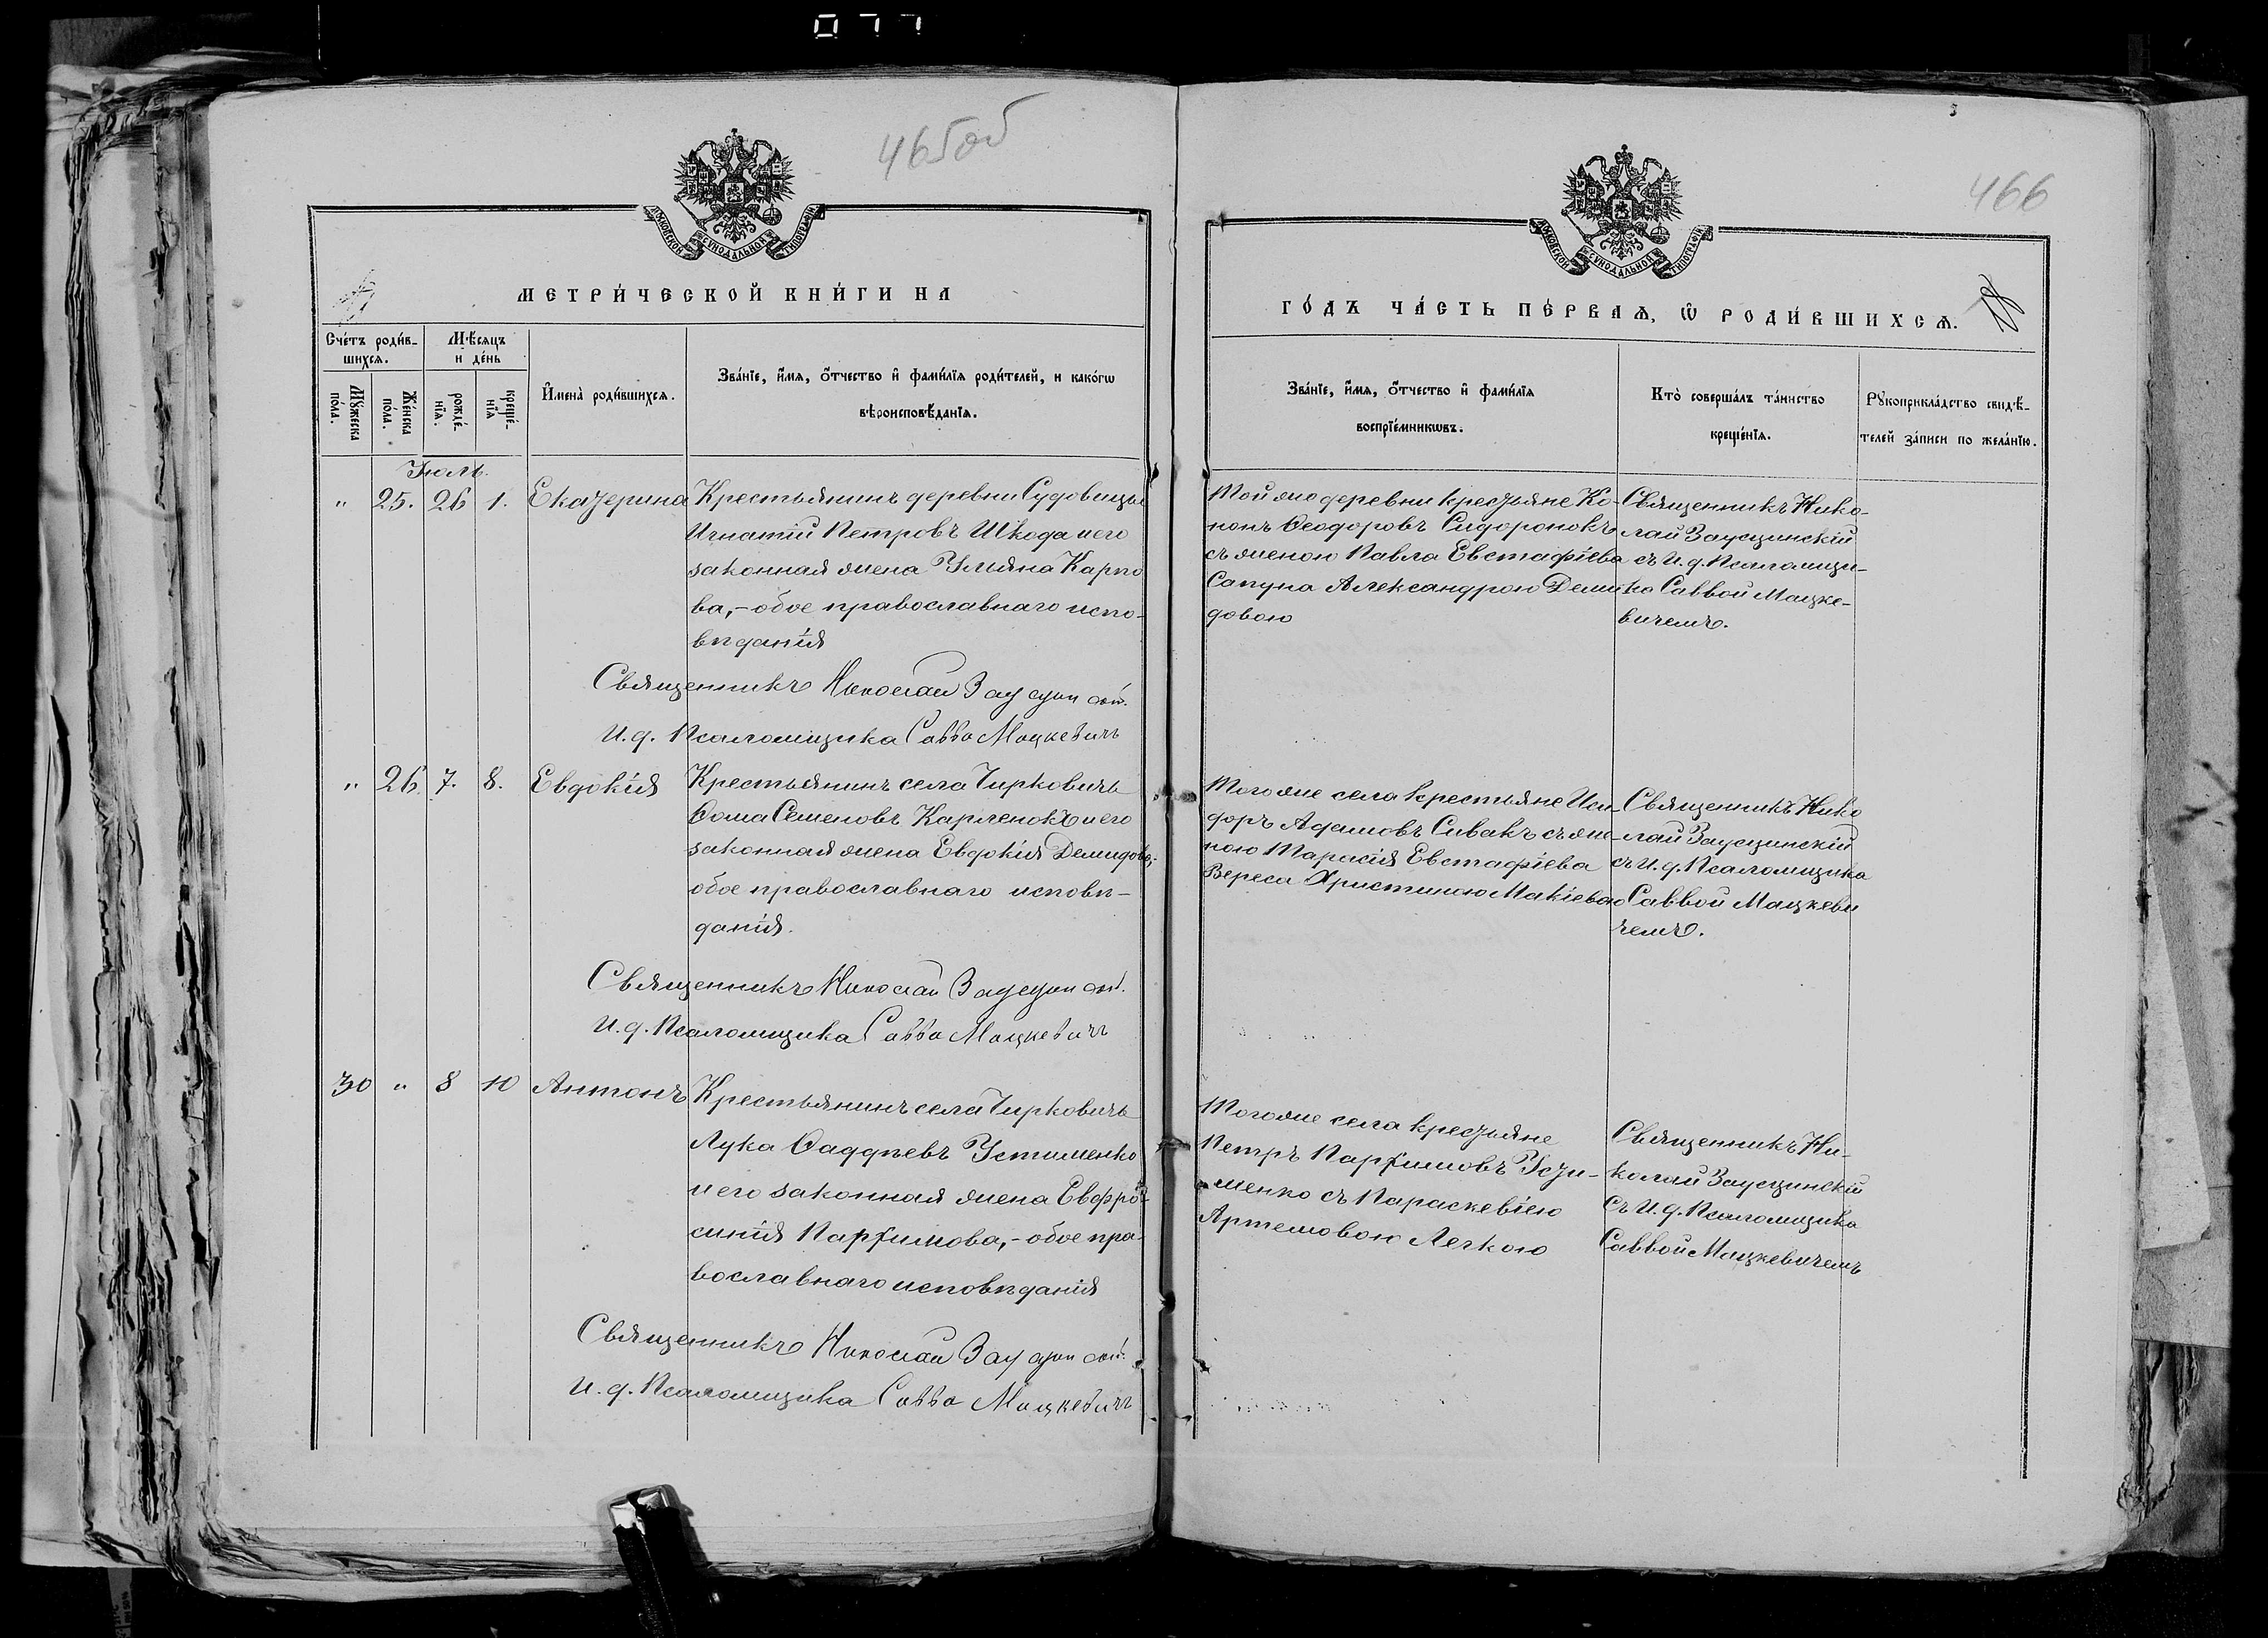 077
465об
МОСКОВСКОЙ СѴНОДАЛЬНОЙ ТИПОГРАФІИ
МЕТРИ́ЧЕСКОЙ КНИ́ГИ НА
Сче́тъ роди́в-
шихсѧ.
Мѣ́сѧцъ
и де́нь
Мꙋ́жеска по́ла.
Же́нска по́ла.
рожде́-нїѧ.
креще́-нїѧ
И҆мена̀ роди́вшихсѧ.
Зва́нїе, и҆́мѧ, ѻ҆́тчество и҆ фами́лїѧ роди́телей, и како́гѡ
вѣроисповѣ́данїѧ.
Іюль.
" 25. 26 1. Екатерина
Крестьянинъ деревни Судовицы
Игнатій Петровъ Шкода и его
законная жена Ульяна Карпо
ва,- обое православнаго испо-
вѣданія
Священникъ Николай Заусцинскій.
И. д. Псаломщика Савва Мацкевичъ
" 26. 7. 8. Евдокія
Крестьянинъ села Чирковичъ
Ѳома Семеновъ Карленокъ и его
законная жена Евдокія Демидова,-
обое православнаго исповѣ-
данія.
Священникъ Николай Заусцинскій.
И. д. Псаломщика Савва Мацкевичъ
30 " 8 10 Антонъ
Крестьянинъ села Чирковичъ
Лука Ѳаддѣевъ Устименко
и его законная жена Евфро-
синія Парѳимова,- обое пра-
вославнаго исповѣданія
Священникъ Николай Заусцинскій.
И. д. Псаломщика Савва Мацкевичъ
466
МОСКОВСКОЙ СѴНОДАЛЬНОЙ ТИПОГРАФІИ
ГО́ДЪ ЧА́СТЬ ПЕ́РВАѦ, Ѡ҆ РОДИ́ВШИХСѦ.
Зва́нїе, и҆́мѧ, ѻ҆́тчество и҆ фами́лїѧ
воспрїе́мникѡвъ.
Кто̀ соверша́лъ та́инство
креще́нїѧ.
Рꙋкоприкла́дство свидѣ́-
телей за́писи по жела́нїю.
Той жо деревни крестьяне Ко-
нонъ Ѳеодоровъ Сидоронокъ
съ женою Павла Евстафіева
Сапуна Александрою Деми-
довою
Священникъ Нико-
лай Заусцинскій
съ И. д. Псаломщи-
ка Саввой Мацке-
вичемъ.
Тогоже села крестьяне Иси-
доръ Адамовъ Сивакъ съ же-
ною Тарасія Евстафіева
Вереса Христиною Макіевою
Священникъ Нико
лай Заусцинскій
съ И. д. Псаломщика
Саввой Мацкеви
чемъ.
Тогоже села крестьяне
Петръ Парѳимовъ Усти-
менко съ Параскевіею
Артемовою Легкою
Священникъ Ни-
колай Заусцинскій
Съ И. д. Псаломщика
Саввой Мацкевичемъ